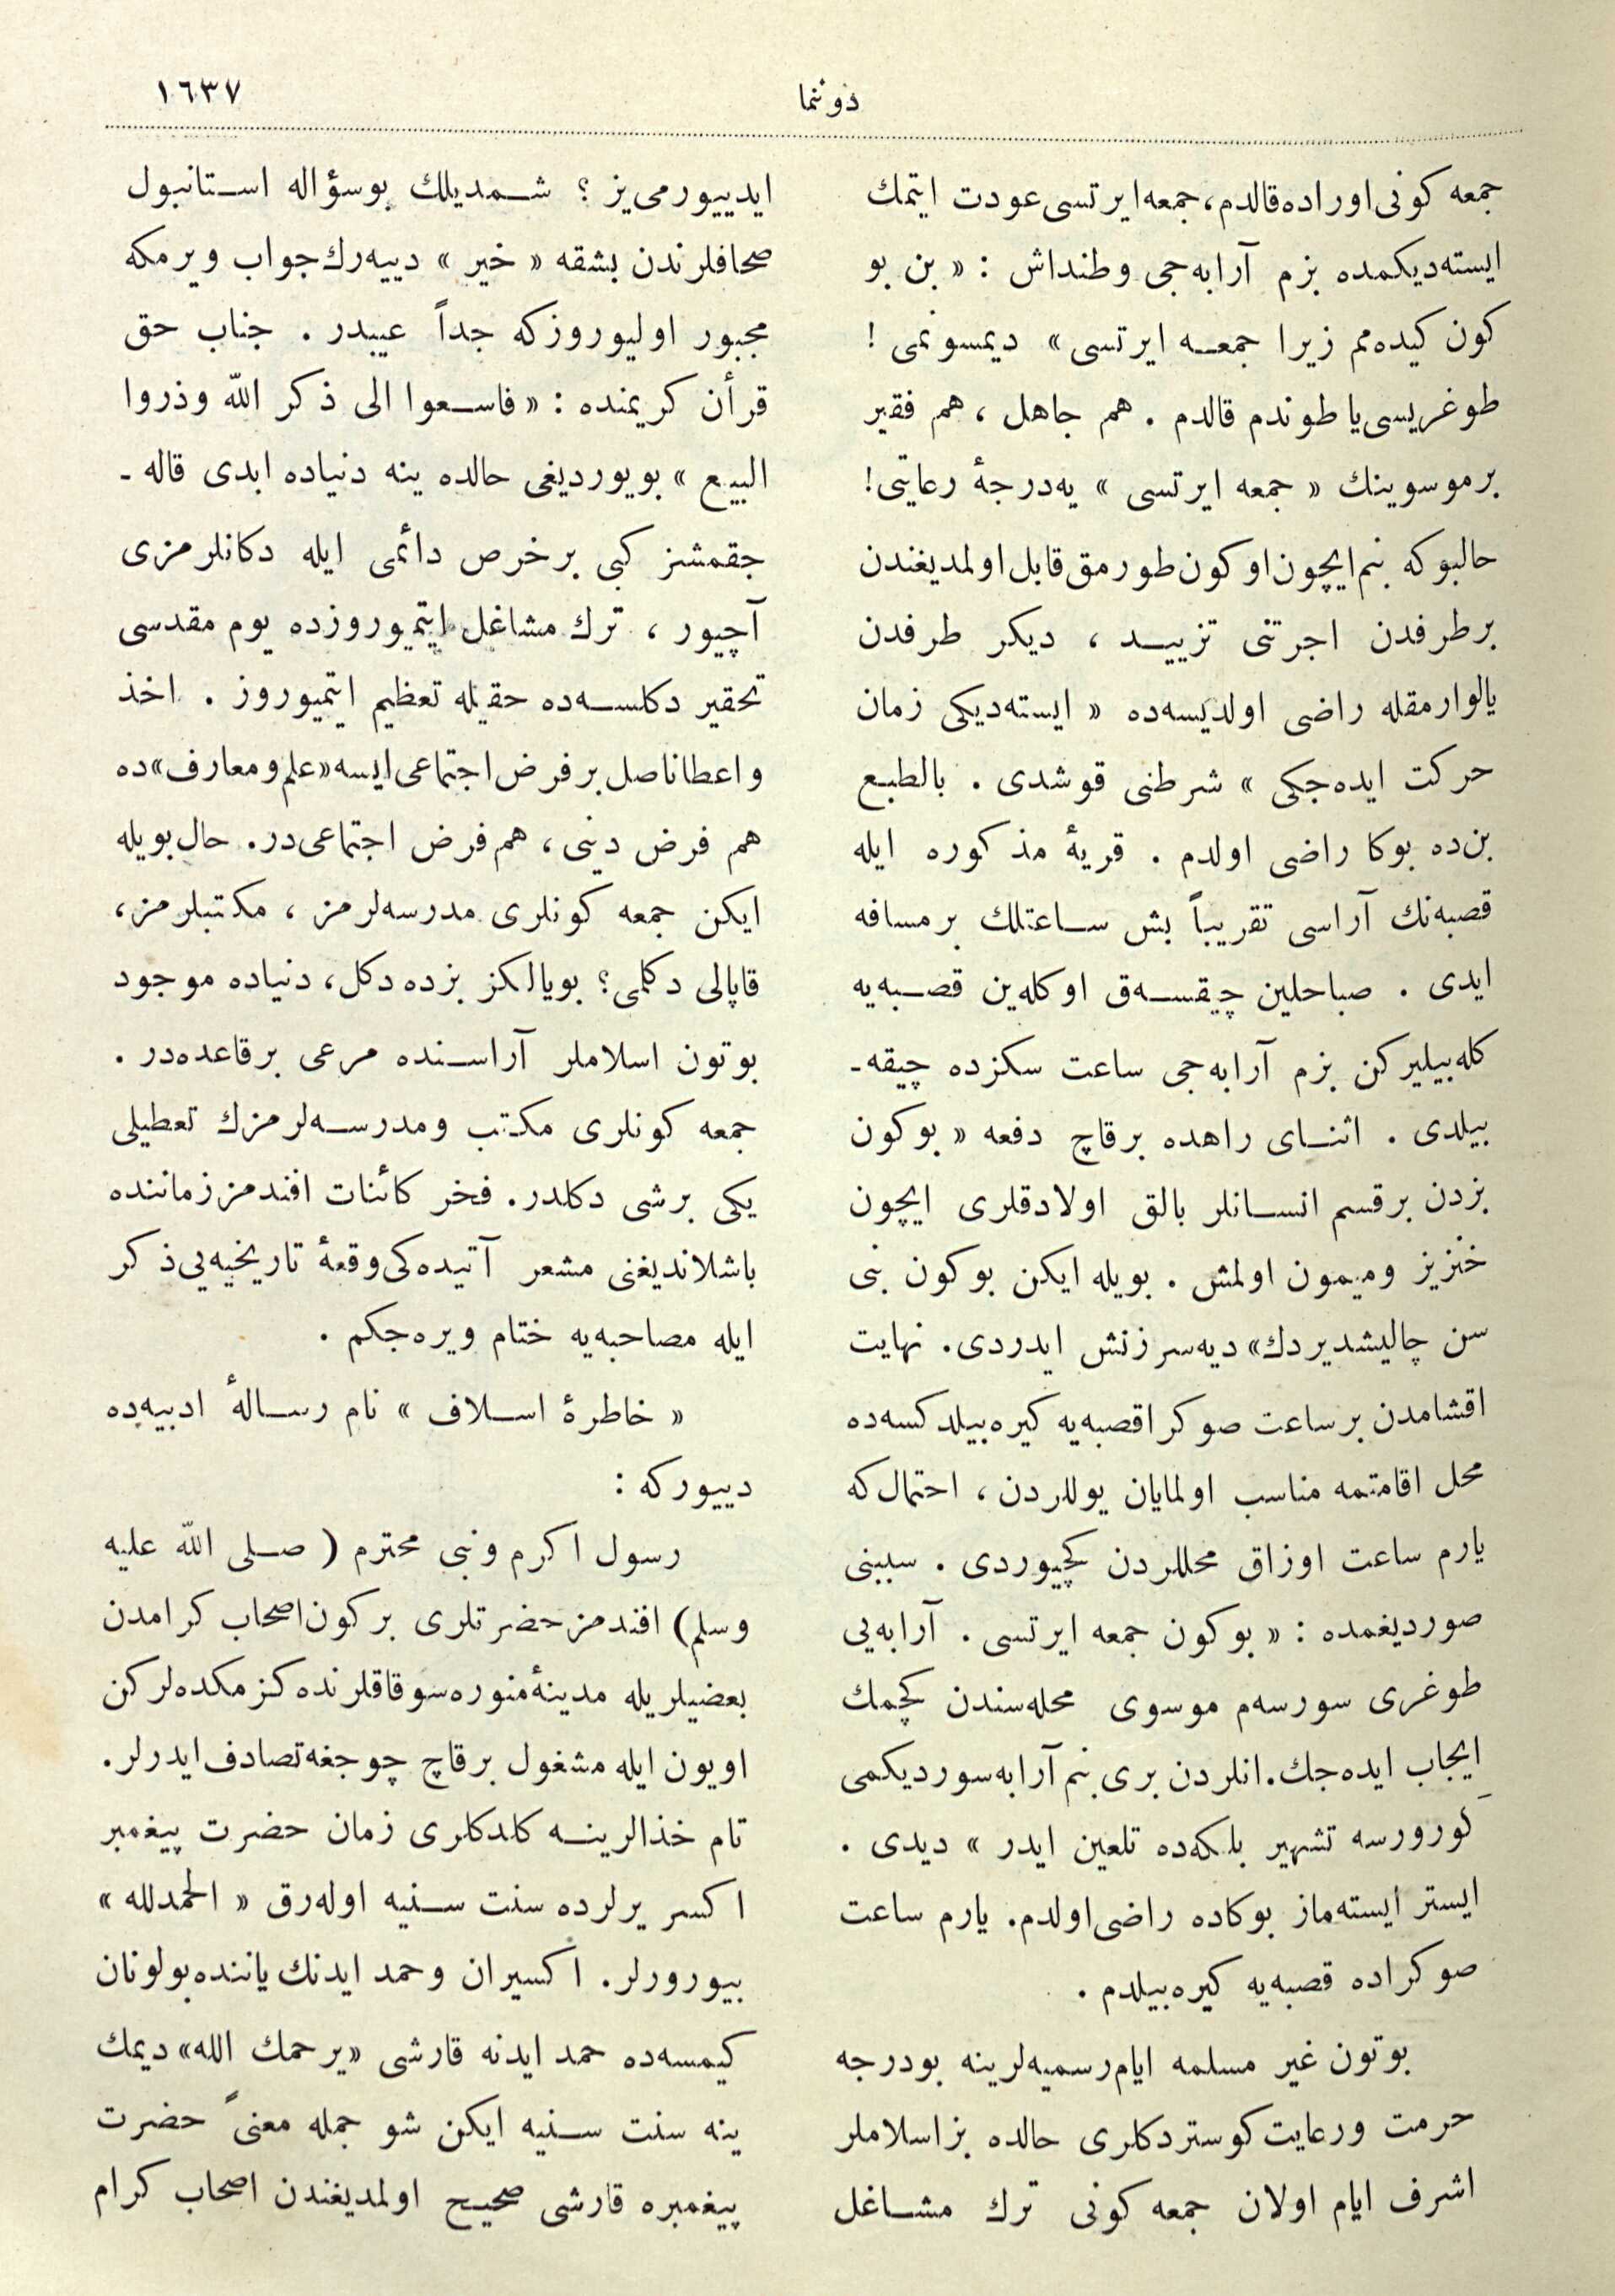 دوننما
١٦٣٧
جمعه كونى اوراده قالدم، جمعه ايرتسى عودت ايتمك
ايسته‌ديكمده بزم آرابه‌جى وطنداش : « بن بو
كون كيده‌مم زيرا جمعه ايرتسى » ديمسونمى !
طوغريسى يا طوندم قالدم . هم جاهل ، هم فقير
برموسوينك « جمعه ايرتسى » يه‌درجۀ رعايتى!
حالبوكه بنم‌ايچون او كون طورمق قابل اولمديغندن
برطرفدن اجرتنى تزييد ، ديكر طرفدن
يالوارمقله راضى اولديسه‌ده « ايسته‌ديكى زمان
حركت ايده‌جكى » شرطنى قوشدى . بالطبع
بن‌ده بوكا راضى اولدم . قريۀ مذكوره ايله
قصبه‌نك آراسى تقريباً بش ساعتلك برمسافه
ايدى . صباحلين چيقسه‌ق اوكله‌ين قصبه‌يه
كله‌بيليركن بزم آرابه‌جى ساعت سكزده چيقه-
بيلدى . اثناى راهده برقاچ دفعه « بوكون
بزدن برقسم انسانلر بالق اولادقلرى ايچون
خنزيز وميمون اولمش . بويله ايكن بوكون بنى
سن چاليشديردك» ديه‌سرزنش ايدردى. نهايت
اقشامدن برساعت صوكرا قصبه‌يه كيره‌بيلدكسه‌ده
محل اقامتمه مناسب اولمايان يوللردن ، احتمال‌كه
يارم ساعت اوزاق محللردن كچيوردى . سببنى
صورديغمده : « بوكون جمعه ايرتسى . آرابه‌يى
طوغرى سورسه‌م موسوى محله‌سندن كچمك
ايجاب ايده‌جك. انلردن برى بنم آرابه سورديكمى
كورورسه تشهير بلكه‌ده تلعين ايدر » ديدى .
ايستر ايسته‌ماز بوكاده راضى اولدم. يارم ساعت
صوكراده قصبه‌يه كيره‌بيلدم .
بوتون غير مسلمه ايام‌رسميه‌لرينه بودرجه
حرمت ورعايت كوستردكلرى حالده بزاسلاملر
اشرف ايام اولان جمعه كونى ترك مشاغل
ايدييورمى‌يز ؟ شمديلك بوسؤاله استانبول
صحافلرندن بشقه « خير » دييه‌رك جواب ويرمكه
مجبور اوليوروزكه جداً عيبدر . جناب حق
قرأن كريمنده : « فاسعوا الى ذكر الله وذروا
البيع » بويورديغى حالده ينه دنياده ابدى قاله-
جقمشز كبى برخرص دائمى ايله دكانلرمزى
آچيور ، ترك مشاغل ايتميوروزده يوم مقدسى
تحقير دكلسه‌ده حقيله تعظيم ايتميوروز . اخذ
واعطا ناصل برفرض اجتماعى ايسه «علم ومعارف»ده
هم فرض دينى ، هم فرض اجتماعى‌در. حال بويله
ايكن جمعه كونلرى مدرسه‌لرمز ، مكتبلرمز،
قاپالى دكلمى؟ بويالكز بزده دكل، دنياده موجود
بوتون اسلاملر آراسنده مرعى برقاعده‌در .
جمعه كونلرى مكتب ومدرسه‌لرمزك تعطيلى
يكى برشى دكلدر. فخر كائنات افندمز زماننده
باشلانديغنى مشعر آتيده‌كى وقعۀ تاريخيه‌يى ذكر
ايله مصاحبه‌يه ختام ويره‌جكم .
« خاطرۀ اسلاف » نام رسالۀ ادبيه‌ده
دييوركه :
رسول اكرم ونبى محترم ( صلى الله عليه
وسلم) افندمز حضرتلرى بركون اصحاب كرامدن
بعضيلريله مدينۀ منوره سوقاقلرنده كزمكده‌لركن
اويون ايله مشغول برقاچ چوجغه تصادف ايدرلر.
تام خذالرينه كلدكلرى زمان حضرت پيغمبر
اكسر يرلرده سنت سنيه اوله‌رق « الحمدلله »
بيورورلر. اكسيران وحمد ايدنك ياننده بولونان
كيمسه‌ده حمد ايدنه قارشى «يرحمك الله» ديمك
ينه سنت سنيه ايكن شو جمله معنىً حضرت
پيغمبره قارشى صحيح اولمديغندن اصحاب كرام